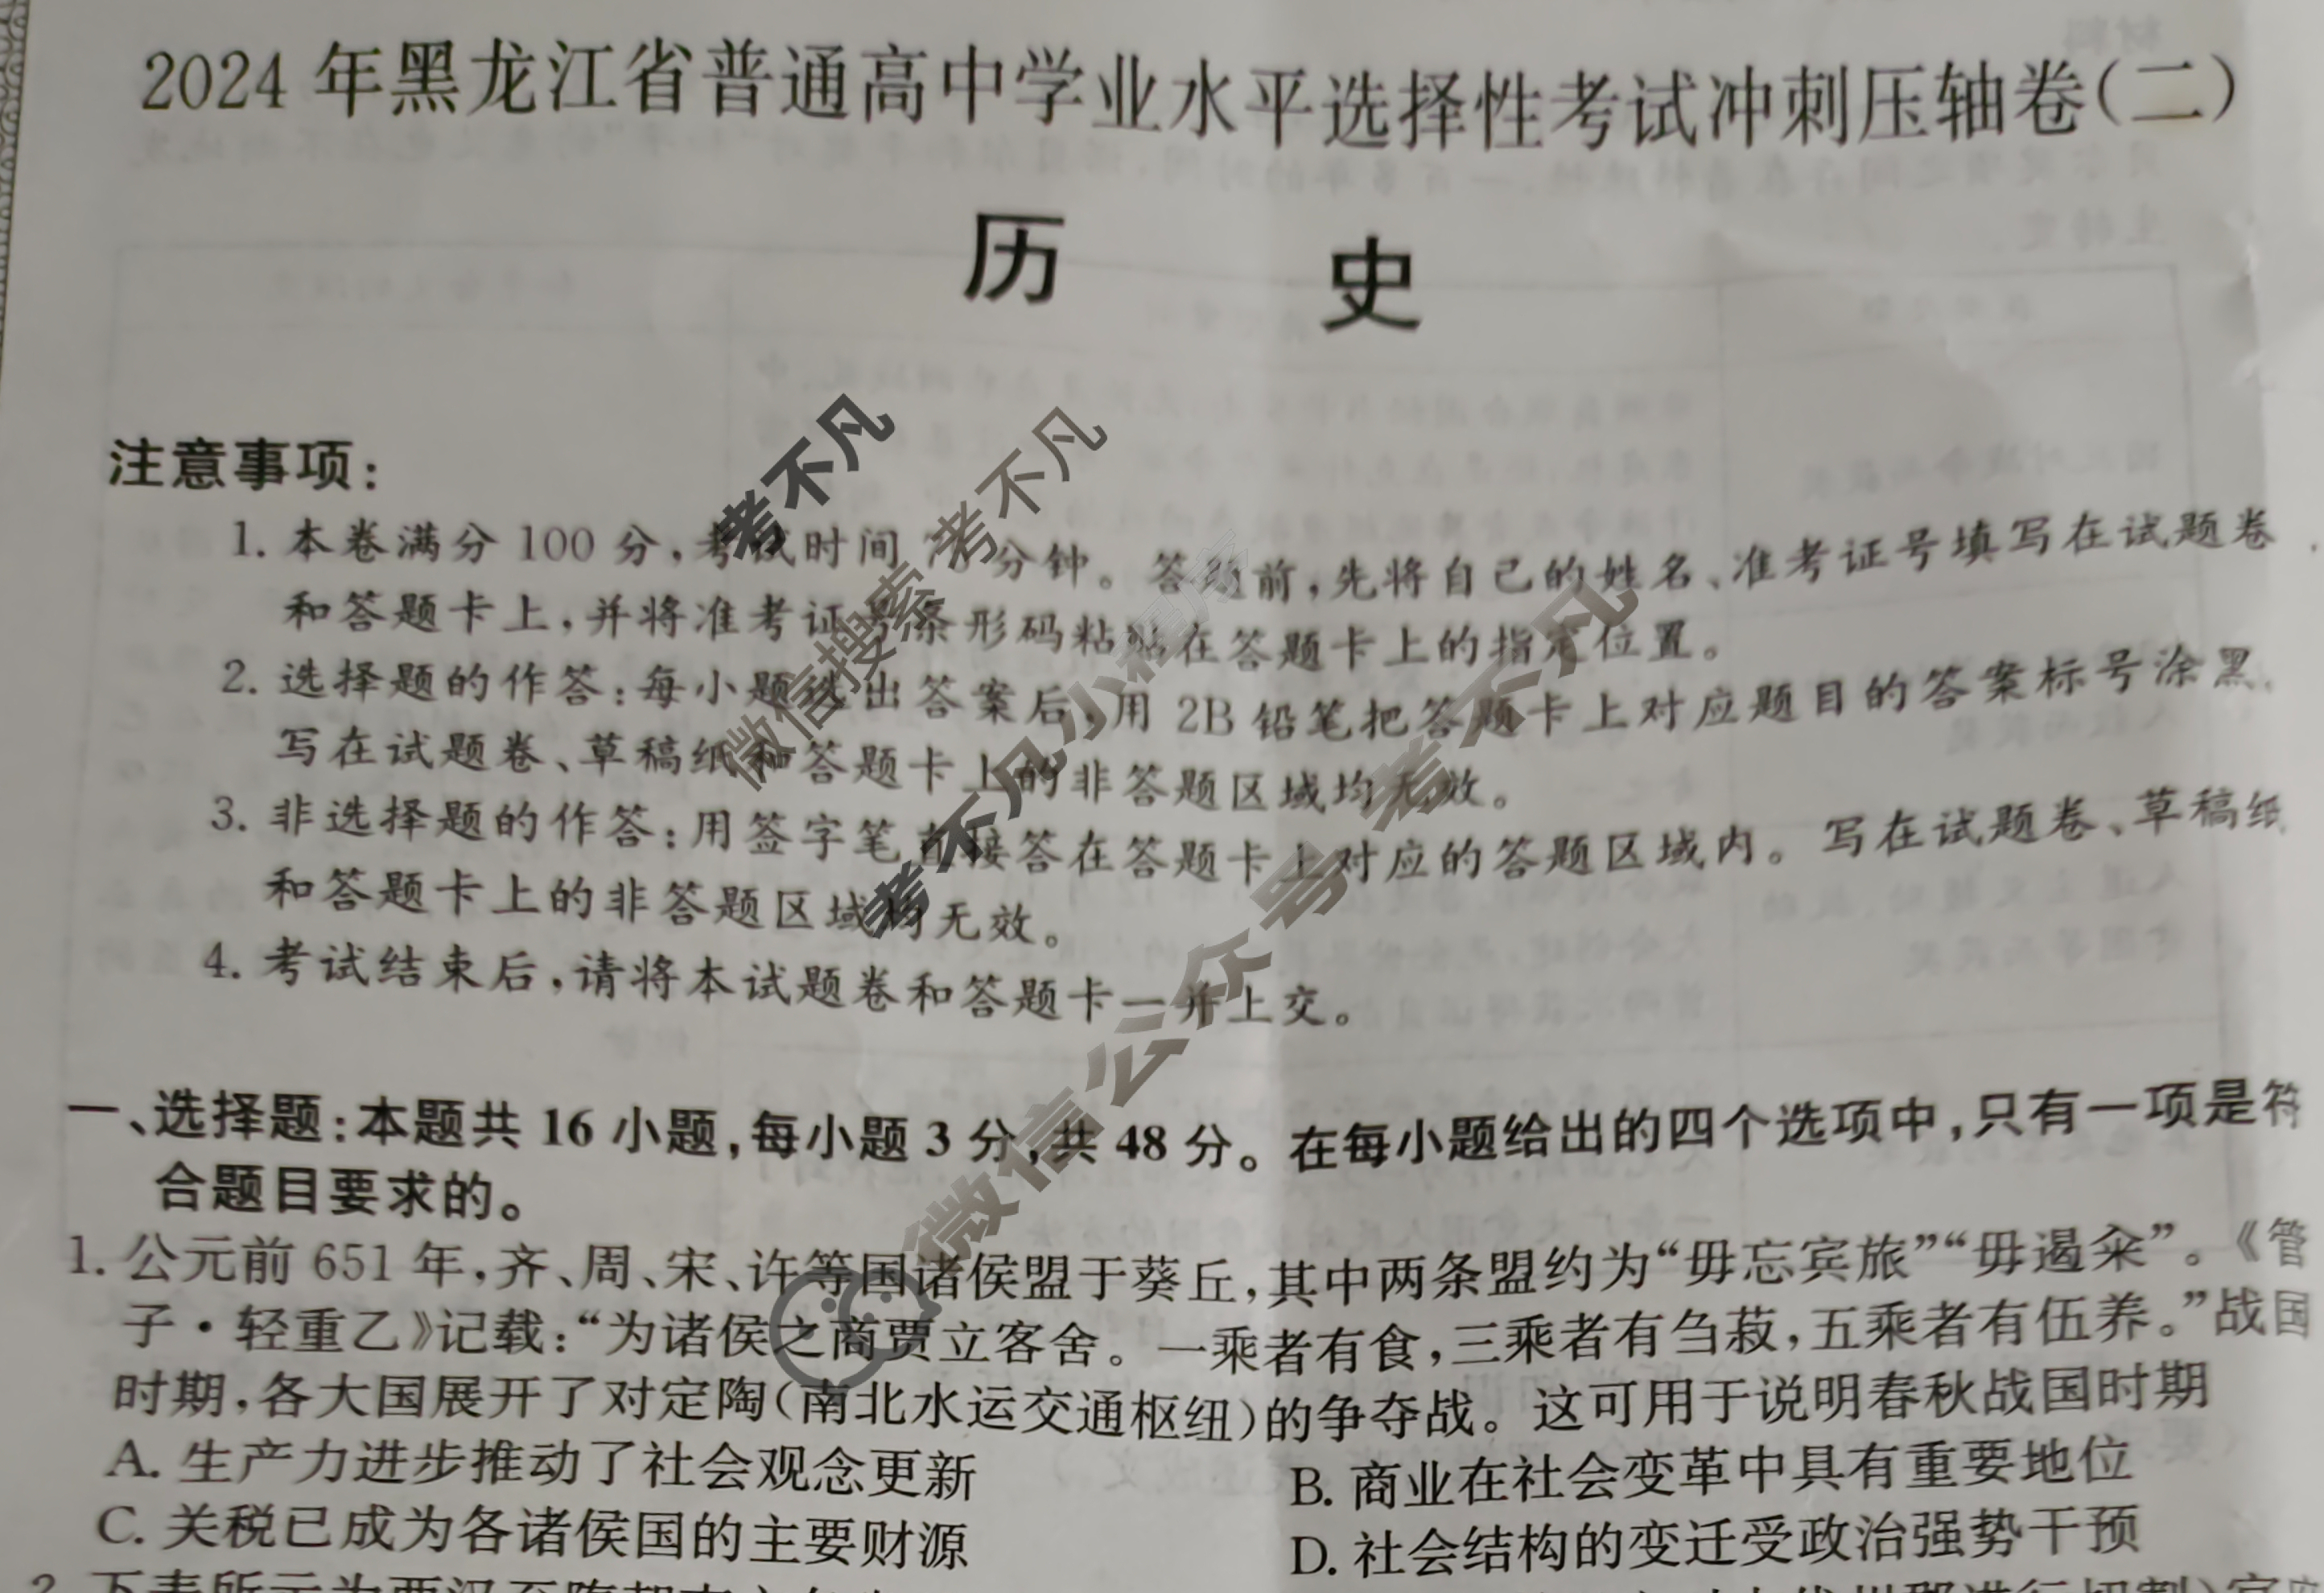 2024 年黑龙江省普通高中学业水平选择性考试冲刺压轴卷(二)
历 史
注意事项:
1. 本卷满分 100 分,考试时间 分钟。答题前,先将自己的姓名、准考证号填写在试题卷
和答题卡上,并将准考证号条形码粘贴在答题卡上的指定位置。
2. 选择题的作答:每小题选出答案后,用 2B 铅笔把答题卡上对应题目的答案标号涂黑。
写在试题卷、草稿纸和答题卡上的非答题区域均无效。
3. 非选择题的作答:用签字笔直接答在答题卡上对应的答题区域内。写在试题卷、草稿纸
和答题卡上的非答题区域均无效。
4. 考试结束后,请将本试题卷和答题卡一并上交。
一、选择题:本题共 16 小题,每小题 3 分,共 48 分。在每小题给出的四个选项中,只有一项是符
合题目要求的。
1. 公元前 651 年,齐、周、宋、许等国诸侯盟于葵丘,其中两条盟约为“毋忘宾旅”“毋遏籴”。《管
子·轻重乙》记载:“为诸侯之商贾立客舍。一乘者有食,三乘者有刍菽,五乘者有伍养。”战国
时期,各大国展开了对定陶(南北水运交通枢纽)的争夺战。这可用于说明春秋战国时期
A. 生产力进步推动了社会观念更新
B. 商业在社会变革中具有重要地位
C. 关税已成为各诸侯国的主要财源
D. 社会结构的变迁受政治强势干预
考不凡
微信搜索 考不凡
考不凡小程序
微信公众号 考不凡